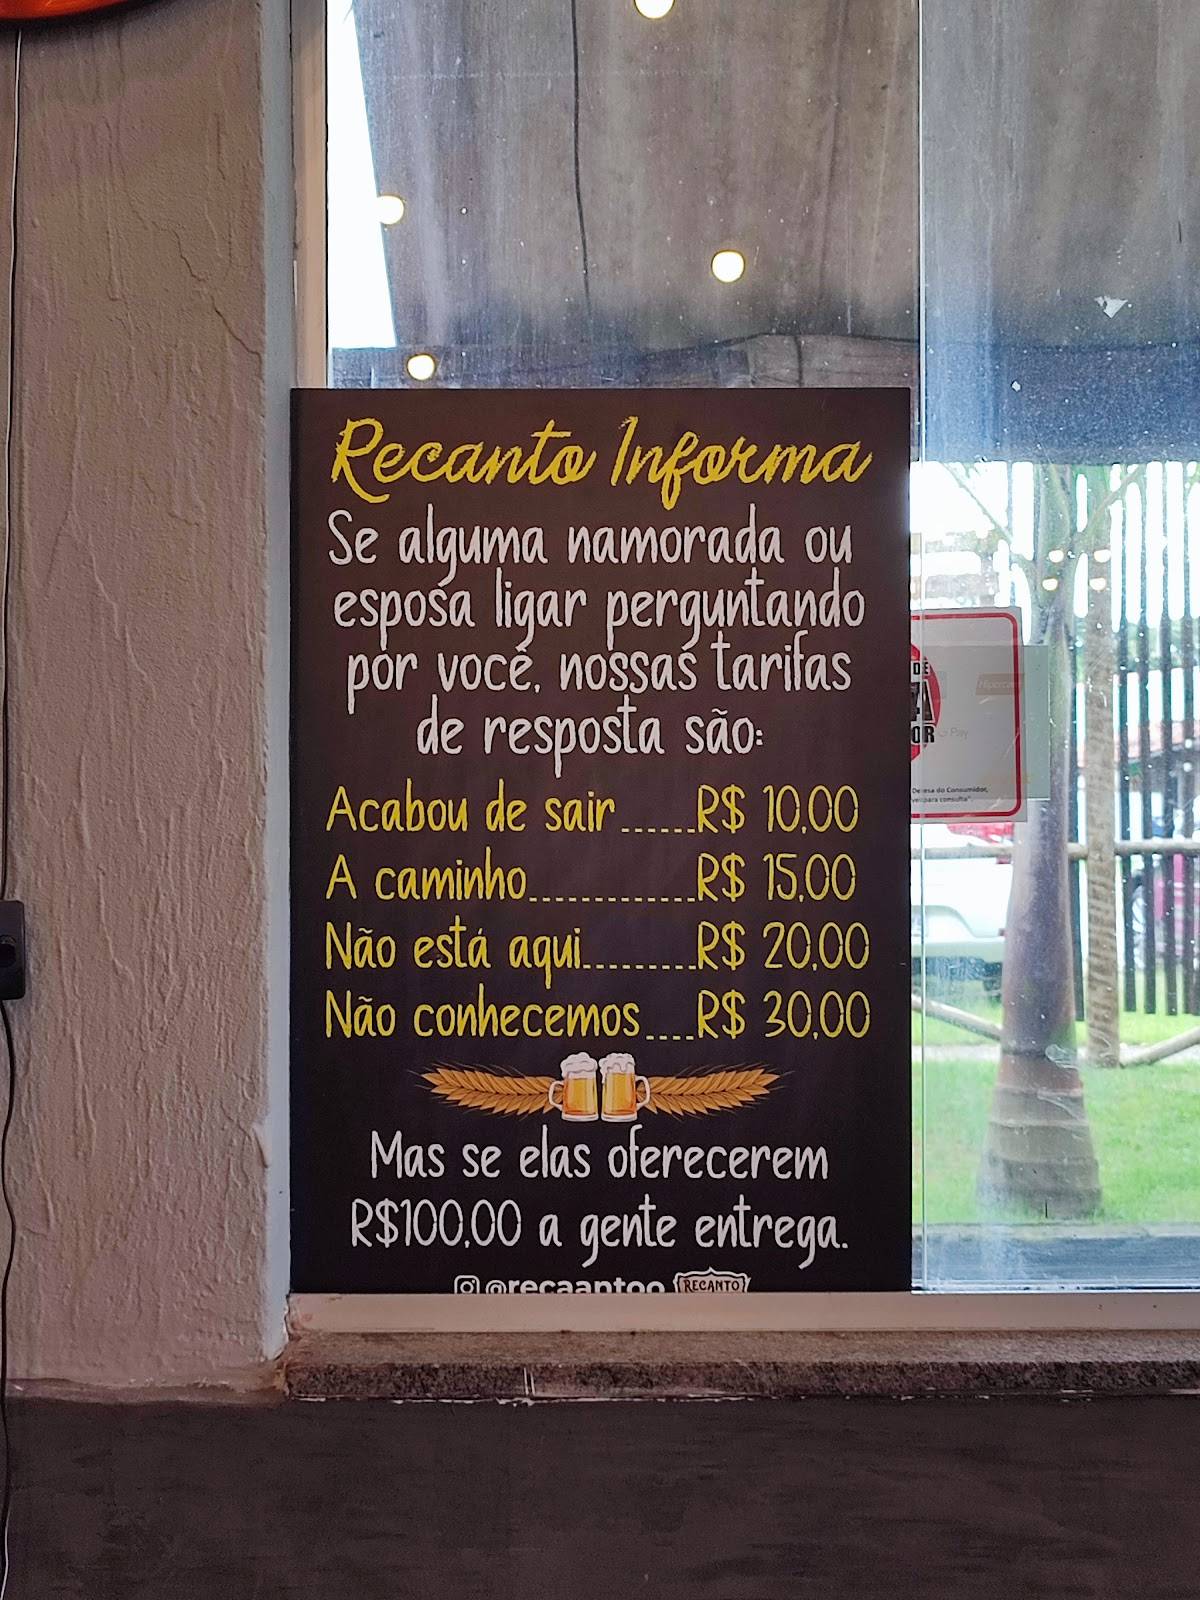 Recanto Informa
Se alguma namorada ou
esposa ligar perguntando
por você, nossas tarifas
de resposta são:
Acabou de sair......R$ 10,00
A caminho............R$ 15,00
Não está aqui.........R$ 20,00
Não conhecemos....R$ 30,00
Mas se elas oferecerem
R$100,00 a gente entrega.
@recaantoo RECANTO
DE
OR
Pay
Defesa do Consumidor,
para consulta".